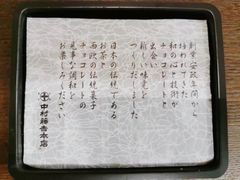 創業安政年間から
培われてきた
和の心と技術が
チョコレートと
出会い
新しい味覚を
つくりました
日本の伝統である
お茶と
西欧の伝統菓子
チョコレートの
見事な調和を
お楽しみください
中村藤吉本店